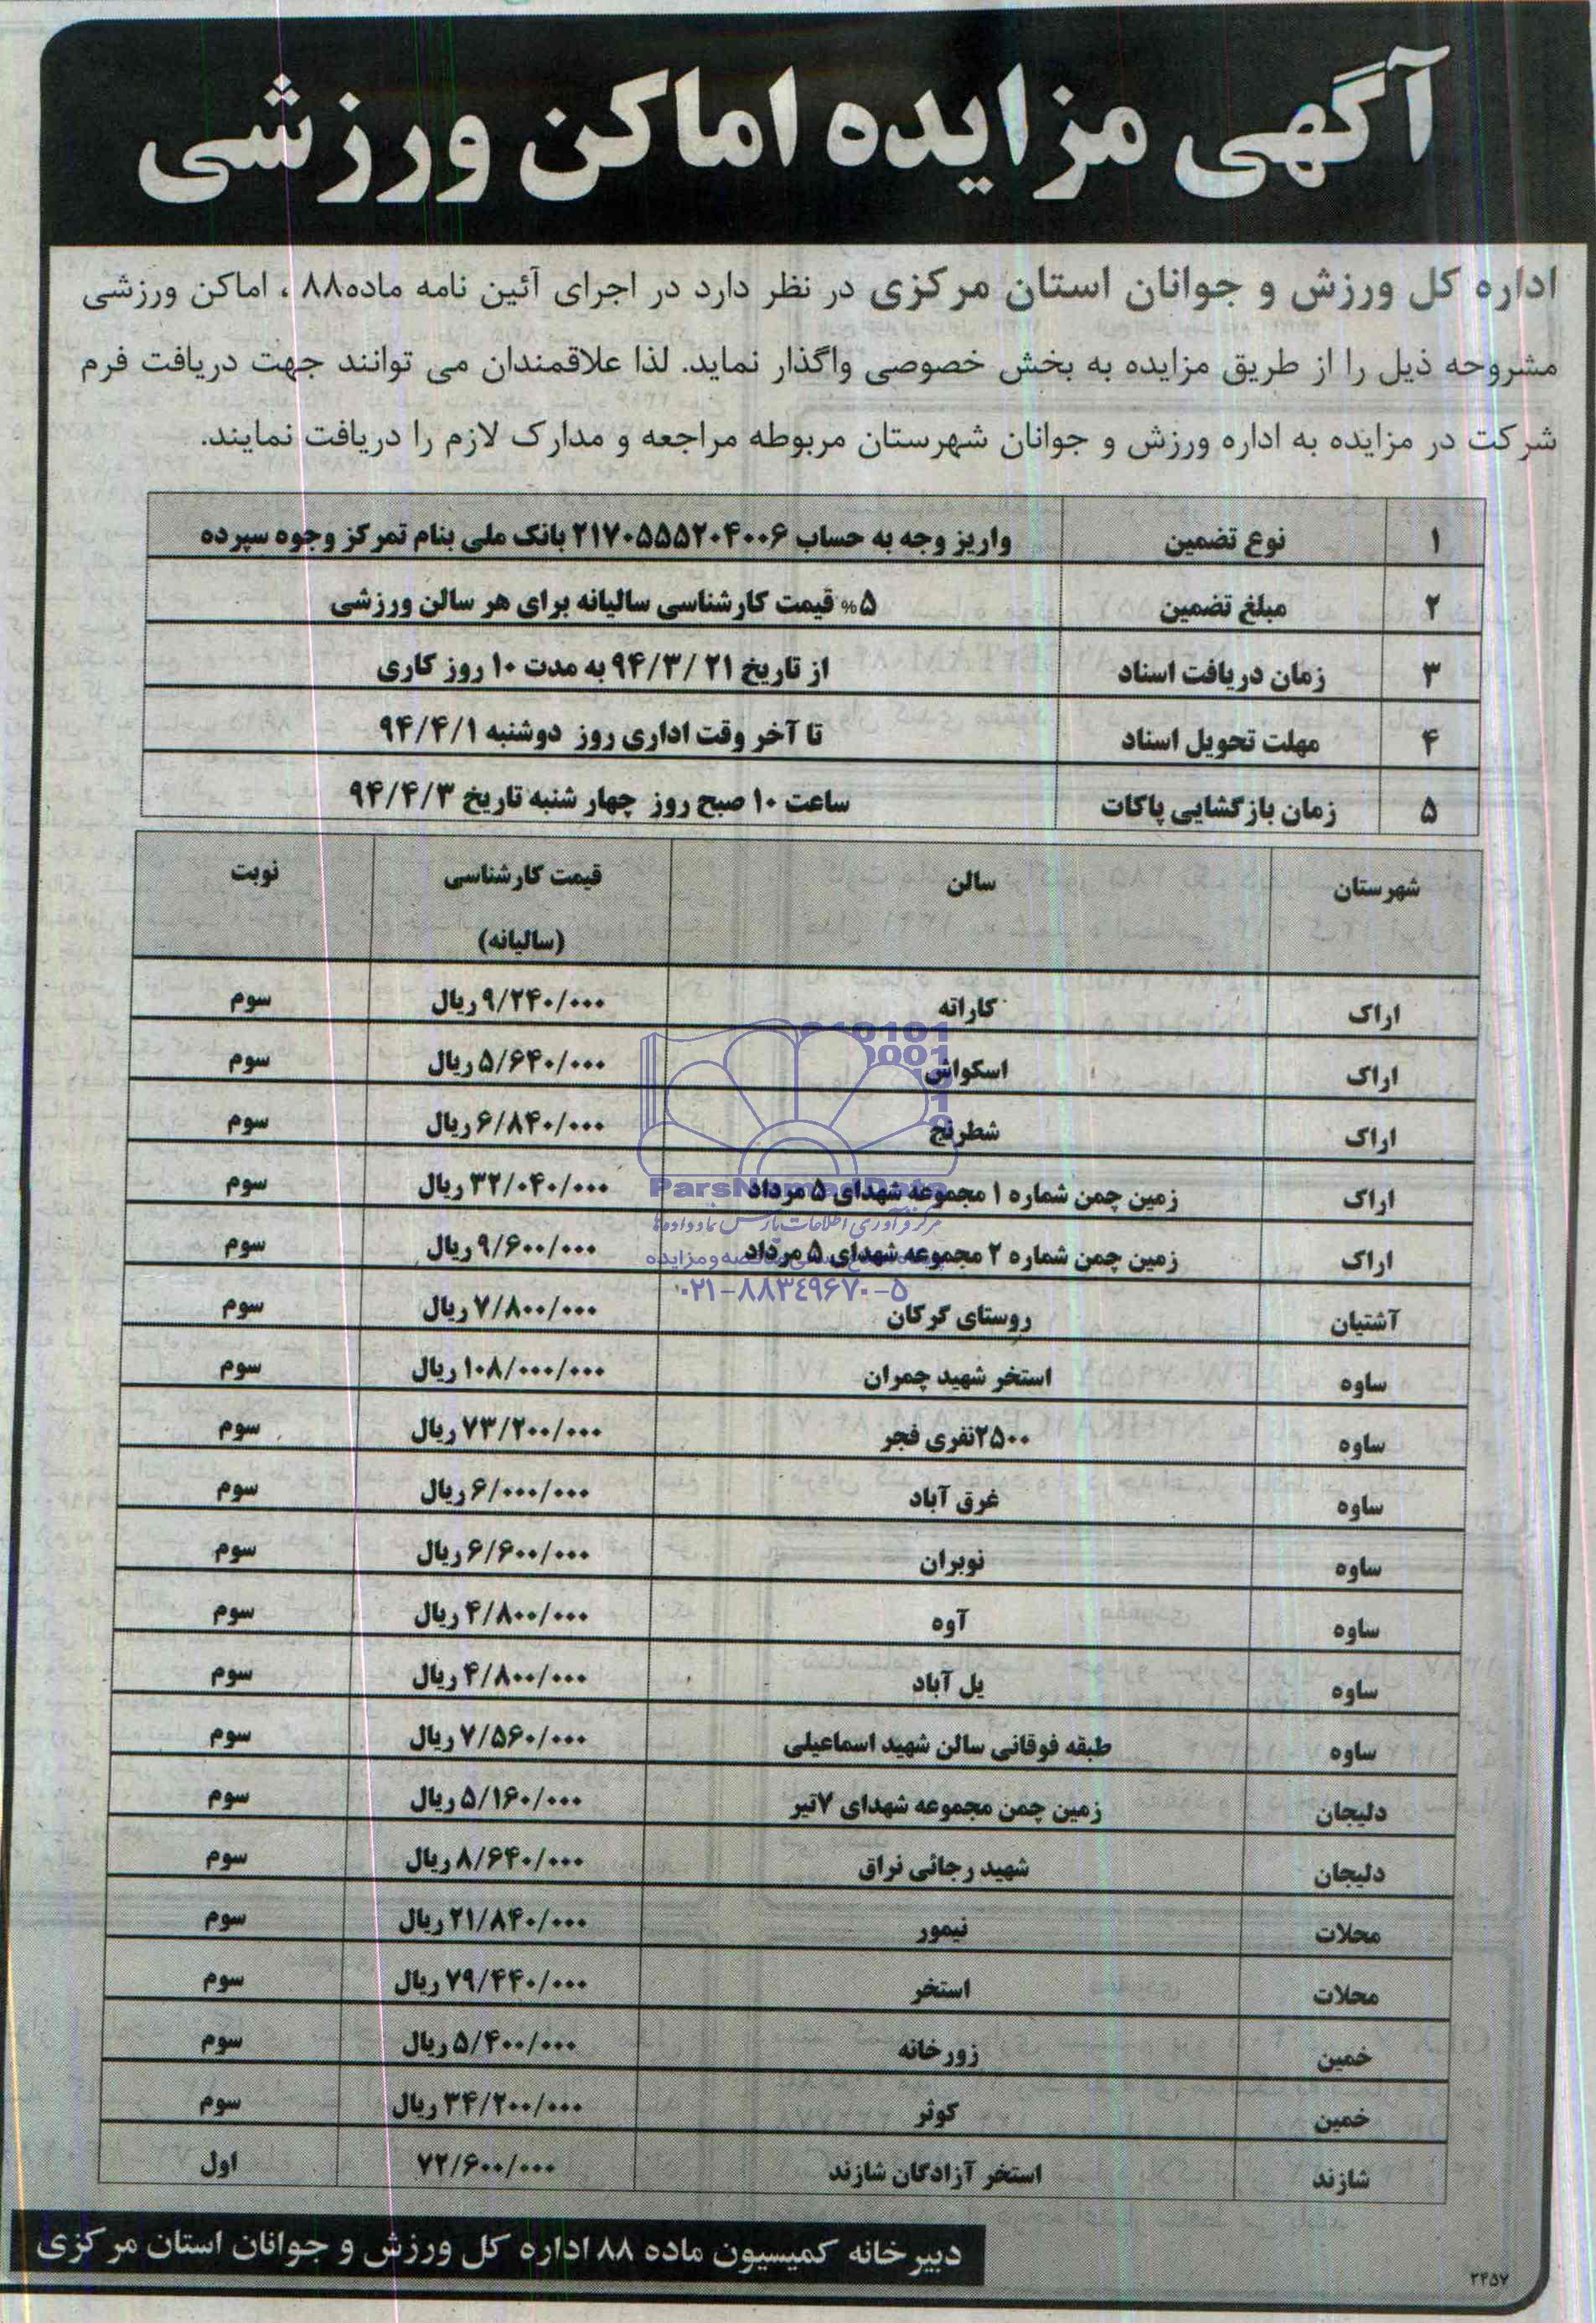 آگهی مزایده اماکن ورزشی
اداره کل ورزش و جوانان استان مرکزی در نظر دارد در اجرای آئین نامه ماده۸۸ ، اماکن ورزشی
مشروحه ذیل را از طریق مزایده به بخش خصوصی واگذار نماید. لذا علاقمندان می توانند جهت دریافت فرم
شرکت در مزایده به اداره ورزش و جوانان شهرستان مربوطه مراجعه و مدارک لازم را دریافت نمایند.
۱ نوع تضمین واریز وجه به حساب ۲۱۷۰۵۵۵۲۰۴۰۰۶ بانک ملی بنام تمرکز وجوه سپرده
۲ مبلغ تضمین ۵% قیمت کارشناسی سالیانه برای هر سالن ورزشی
۳ زمان دریافت اسناد از تاریخ ۹۴/۳/۲۱ به مدت ۱۰ روز کاری
۴ مهلت تحویل اسناد تا آخر وقت اداری روز دوشنبه ۹۴/۴/۱
۵ زمان بازگشایی پاکات ساعت ۱۰ صبح روز چهار شنبه تاریخ ۹۴/۴/۳
شهرستان سالن قیمت کارشناسی (سالیانه) نوبت
اراک کاراته ۹/۲۴۰/۰۰۰ ریال سوم
اراک اسکواش ۵/۶۴۰/۰۰۰ ریال سوم
اراک شطرنج ۶/۸۴۰/۰۰۰ ریال سوم
اراک زمین چمن شماره ۱ مجموعه شهدای ۵ مرداد ۳۲/۰۴۰/۰۰۰ ریال سوم
اراک زمین چمن شماره ۲ مجموعه شهدای ۵ مرداد ۹/۶۰۰/۰۰۰ ریال سوم
آشتیان روستای گرکان ۷/۸۰۰/۰۰۰ ریال سوم
ساوه استخر شهید چمران ۱۰۸/۰۰۰/۰۰۰ ریال سوم
ساوه ۲۵۰۰نفری فجر ۷۳/۲۰۰/۰۰۰ ریال سوم
ساوه غرق آباد ۶/۰۰۰/۰۰۰ ریال سوم
ساوه نوبران ۶/۶۰۰/۰۰۰ ریال سوم
ساوه آوه ۴/۸۰۰/۰۰۰ ریال سوم
ساوه یل آباد ۴/۸۰۰/۰۰۰ ریال سوم
ساوه طبقه فوقانی سالن شهید اسماعیلی ۷/۵۶۰/۰۰۰ ریال سوم
دلیجان زمین چمن مجموعه شهدای ۷تیر ۵/۱۶۰/۰۰۰ ریال سوم
دلیجان شهید رجائی نراق ۸/۶۴۰/۰۰۰ ریال سوم
محلات نیمور ۲۱/۸۴۰/۰۰۰ ریال سوم
محلات استخر ۷۹/۴۴۰/۰۰۰ ریال سوم
خمین زورخانه ۵/۴۰۰/۰۰۰ ریال سوم
خمین کوثر ۳۴/۲۰۰/۰۰۰ ریال سوم
شازند استخر آزادگان شازند ۷۲/۶۰۰/۰۰۰ اول
دبیرخانه کمیسیون ماده ۸۸ اداره کل ورزش و جوانان استان مرکزی
۲۴۵۷
ParsNamadData
۰۲۱-۸۸۳۴۹۶۷۰-۵